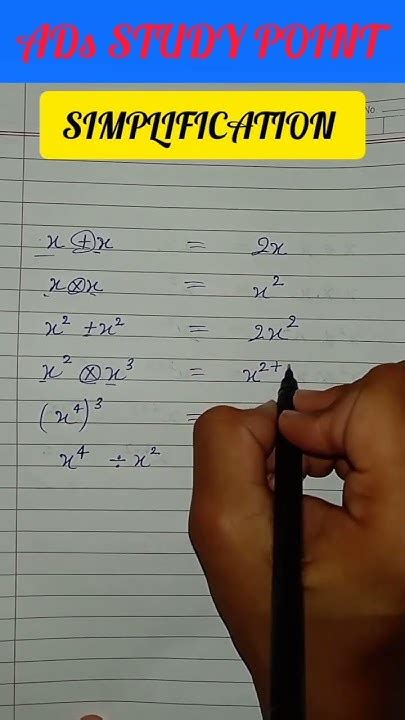 ADs STUDY POINT
No
SIMPLIFICATION
x + x = 2x
x ⊗ x = x²
x² + x² = 2x²
x² ⊗ x³ = x²⁺
(x⁴)³ =
x⁴ ÷ x²